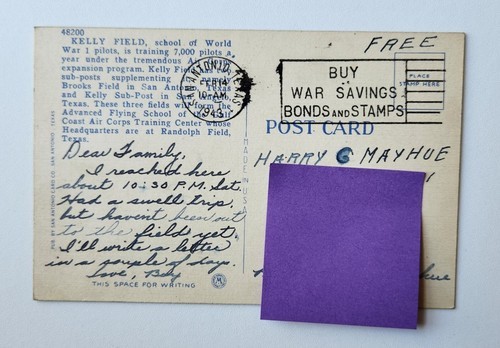 48200
KELLY FIELD, school of World
War 1 pilots, is training 7,000 pilots a
year under the tremendous Air
expansion program. Kelly Field has two
sub-posts supplementing namely
Brooks Field in San Antonio, Texas
and Kelly Sub-Post in San
Texas. These three fields will form the
Advanced Flying School of the Gulf
Coast Air Corps Training Center whose
Headquarters are at Randolph Field,
Texas.
Dear Family,
I reached here
about 10:30 P.M. Sat.
Had a swell trip,
but havent been out
to the field yet.
I'll write a letter
in a couple of days.
Love,
THIS SPACE FOR WRITING
PUB. BY SAN ANTONIO CARD CO. SAN ANTONIO, TEXAS
MADE IN
SAN ANTONIO
10-AM
1943
FREE
BUY
WAR SAVINGS
BONDS AND STAMPS
PLACE
STAMP HERE
POST CARD
HARRY C MAYHUE